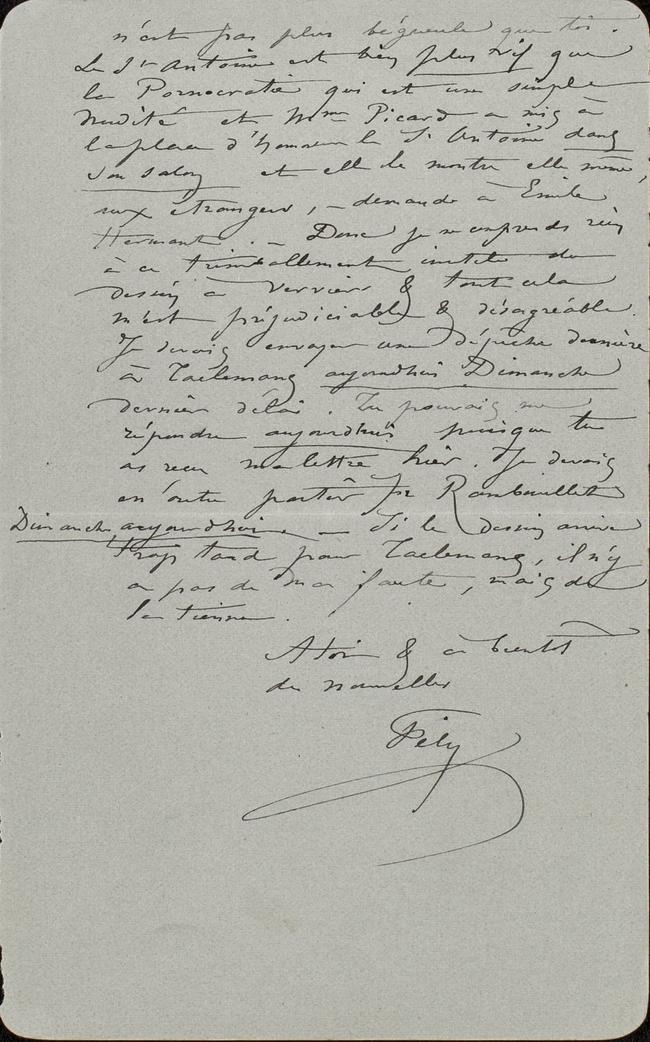 n'est pas plus bégueule que toi.
Le St Antoine est bien plus vif que
la Pornocratie qui est une simple
Nudité et Mme Picard a mis à
la place d'honneur le St Antoine dans
son salon et elle le montre elle même,
aux étrangers, – demande à Emile
Hermant. – Donc je ne comprends rien
à ce trimballement inutile du
dessin à Verviers & tout cela
m'est préjudiciable & désagréable.
Je devais envoyer une dépêche dernière
à Taelemans aujourdhui Dimanche
dernier délai. Tu pouvais me
répondre aujourdhui puisque tu
as reçu ma lettre hier. Je devais
en outre partir pr Rambouillet
Dimanche, aujourdhui. – Si le dessin arrive
trop tard pour Taelemans, il n'y
a pas de ma faute, mais de
la tienne.
A toi & à bientot
des nouvelles
Fély